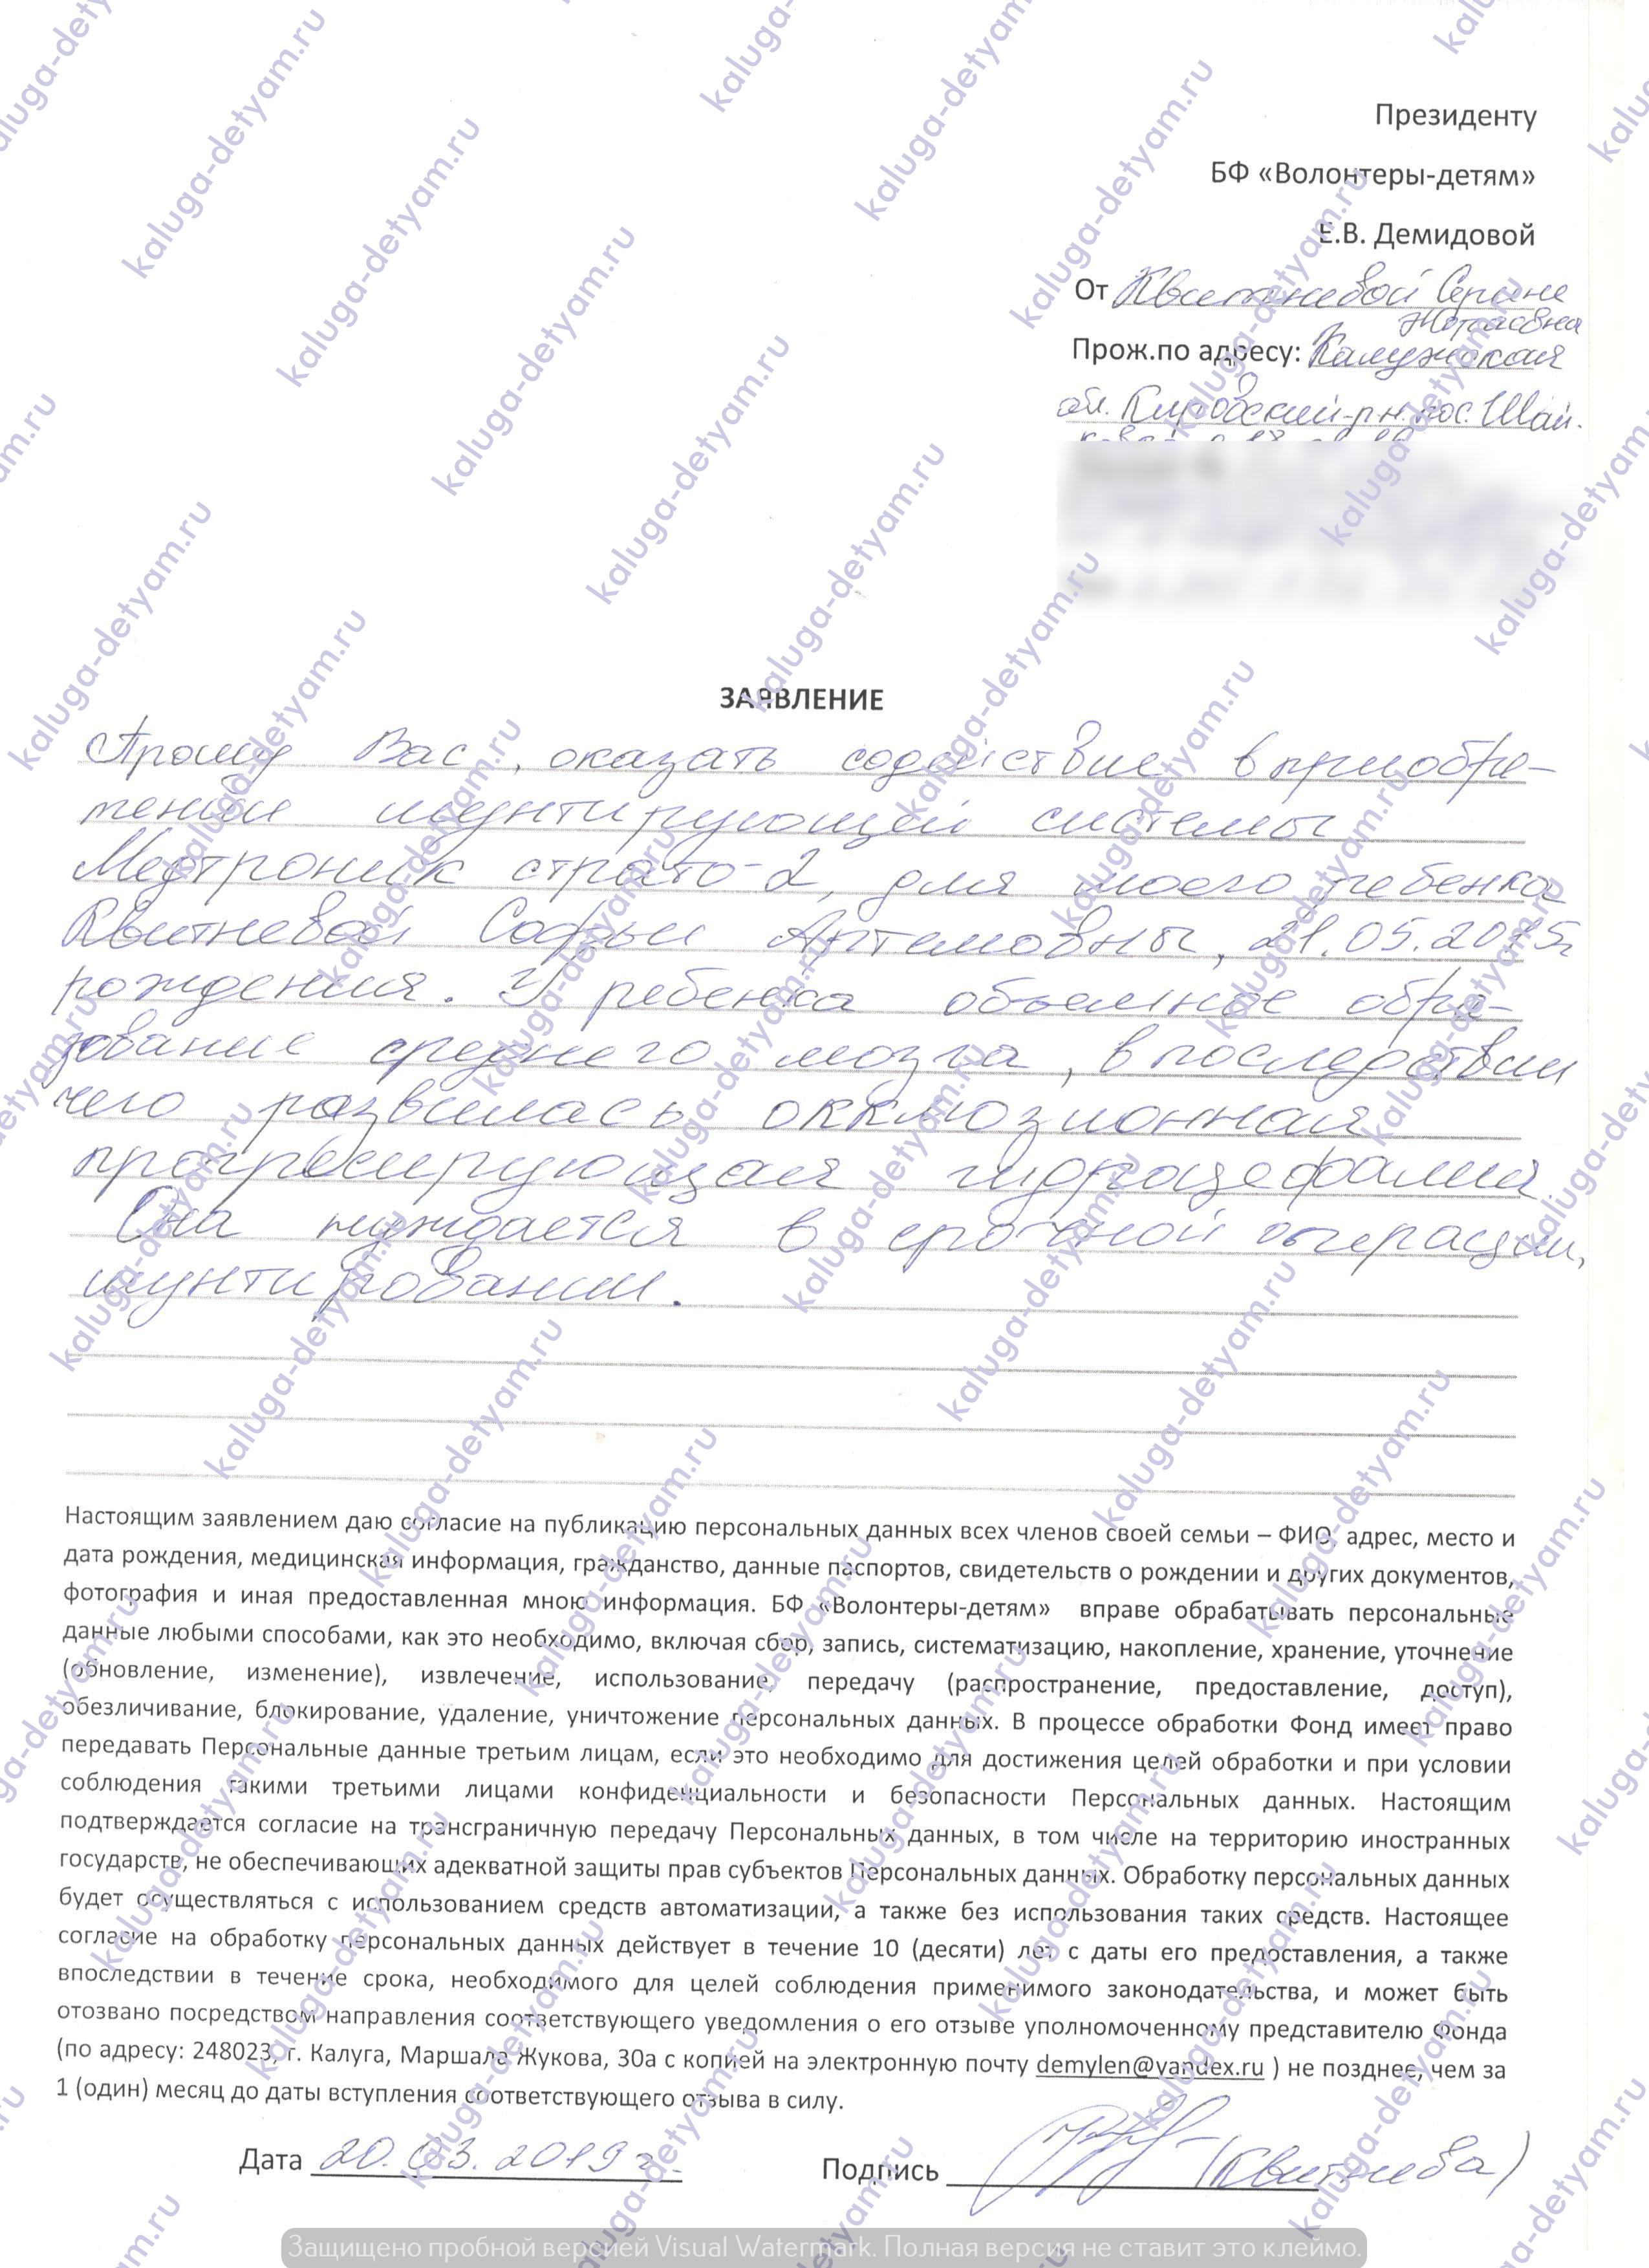 Президенту
БФ «Волонтеры-детям»
Е.В. Демидовой
От Квитневой Серине
Жораовна
Прож.по адресу: Калужская
обл. Кировский р-н. пос. Шай-
ЗАЯВЛЕНИЕ
Прошу Вас, оказать содействие в приобре-
тении шунтирующей системы
Медтроник страто-2, для моего ребенка
Квитневой Софьи Артемовны, 21.05.2015г
рождения. У ребенка объемное обра-
зование среднего мозга, в последствии
чего развилась окклюзионная
прогресирующая гидроцефалия.
Она нуждается в срочной операции,
шунтировании.
Настоящим заявлением даю согласие на публикацию персональных данных всех членов своей семьи – ФИО, адрес, место и
дата рождения, медицинская информация, гражданство, данные паспортов, свидетельств о рождении и других документов,
фотография и иная предоставленная мною информация. БФ «Волонтеры-детям» вправе обрабатывать персональные
данные любыми способами, как это необходимо, включая сбор, запись, систематизацию, накопление, хранение, уточнение
(обновление, изменение), извлечение, использование, передачу (распространение, предоставление, доступ),
обезличивание, блокирование, удаление, уничтожение персональных данных. В процессе обработки Фонд имеет право
передавать Персональные данные третьим лицам, если это необходимо для достижения целей обработки и при условии
соблюдения такими третьими лицами конфиденциальности и безопасности Персональных данных. Настоящим
подтверждается согласие на трансграничную передачу Персональных данных, в том числе на территорию иностранных
государств, не обеспечивающих адекватной защиты прав субъектов Персональных данных. Обработку персональных данных
будет осуществляться с использованием средств автоматизации, а также без использования таких средств. Настоящее
согласие на обработку персональных данных действует в течение 10 (десяти) лет с даты его предоставления, а также
впоследствии в течение срока, необходимого для целей соблюдения применимого законодательства, и может быть
отозвано посредством направления соответствующего уведомления о его отзыве уполномоченному представителю Фонда
(по адресу: 248023, г. Калуга, Маршала Жукова, 30а с копией на электронную почту demylen@yandex.ru ) не позднее, чем за
1 (один) месяц до даты вступления соответствующего отзыва в силу.
Дата 20.03.2019 г. Подпись (Квитнева)
Защищено пробной версией Visual Watermark. Полная версия не ставит это клеймо.
kaluga-detyam.ru